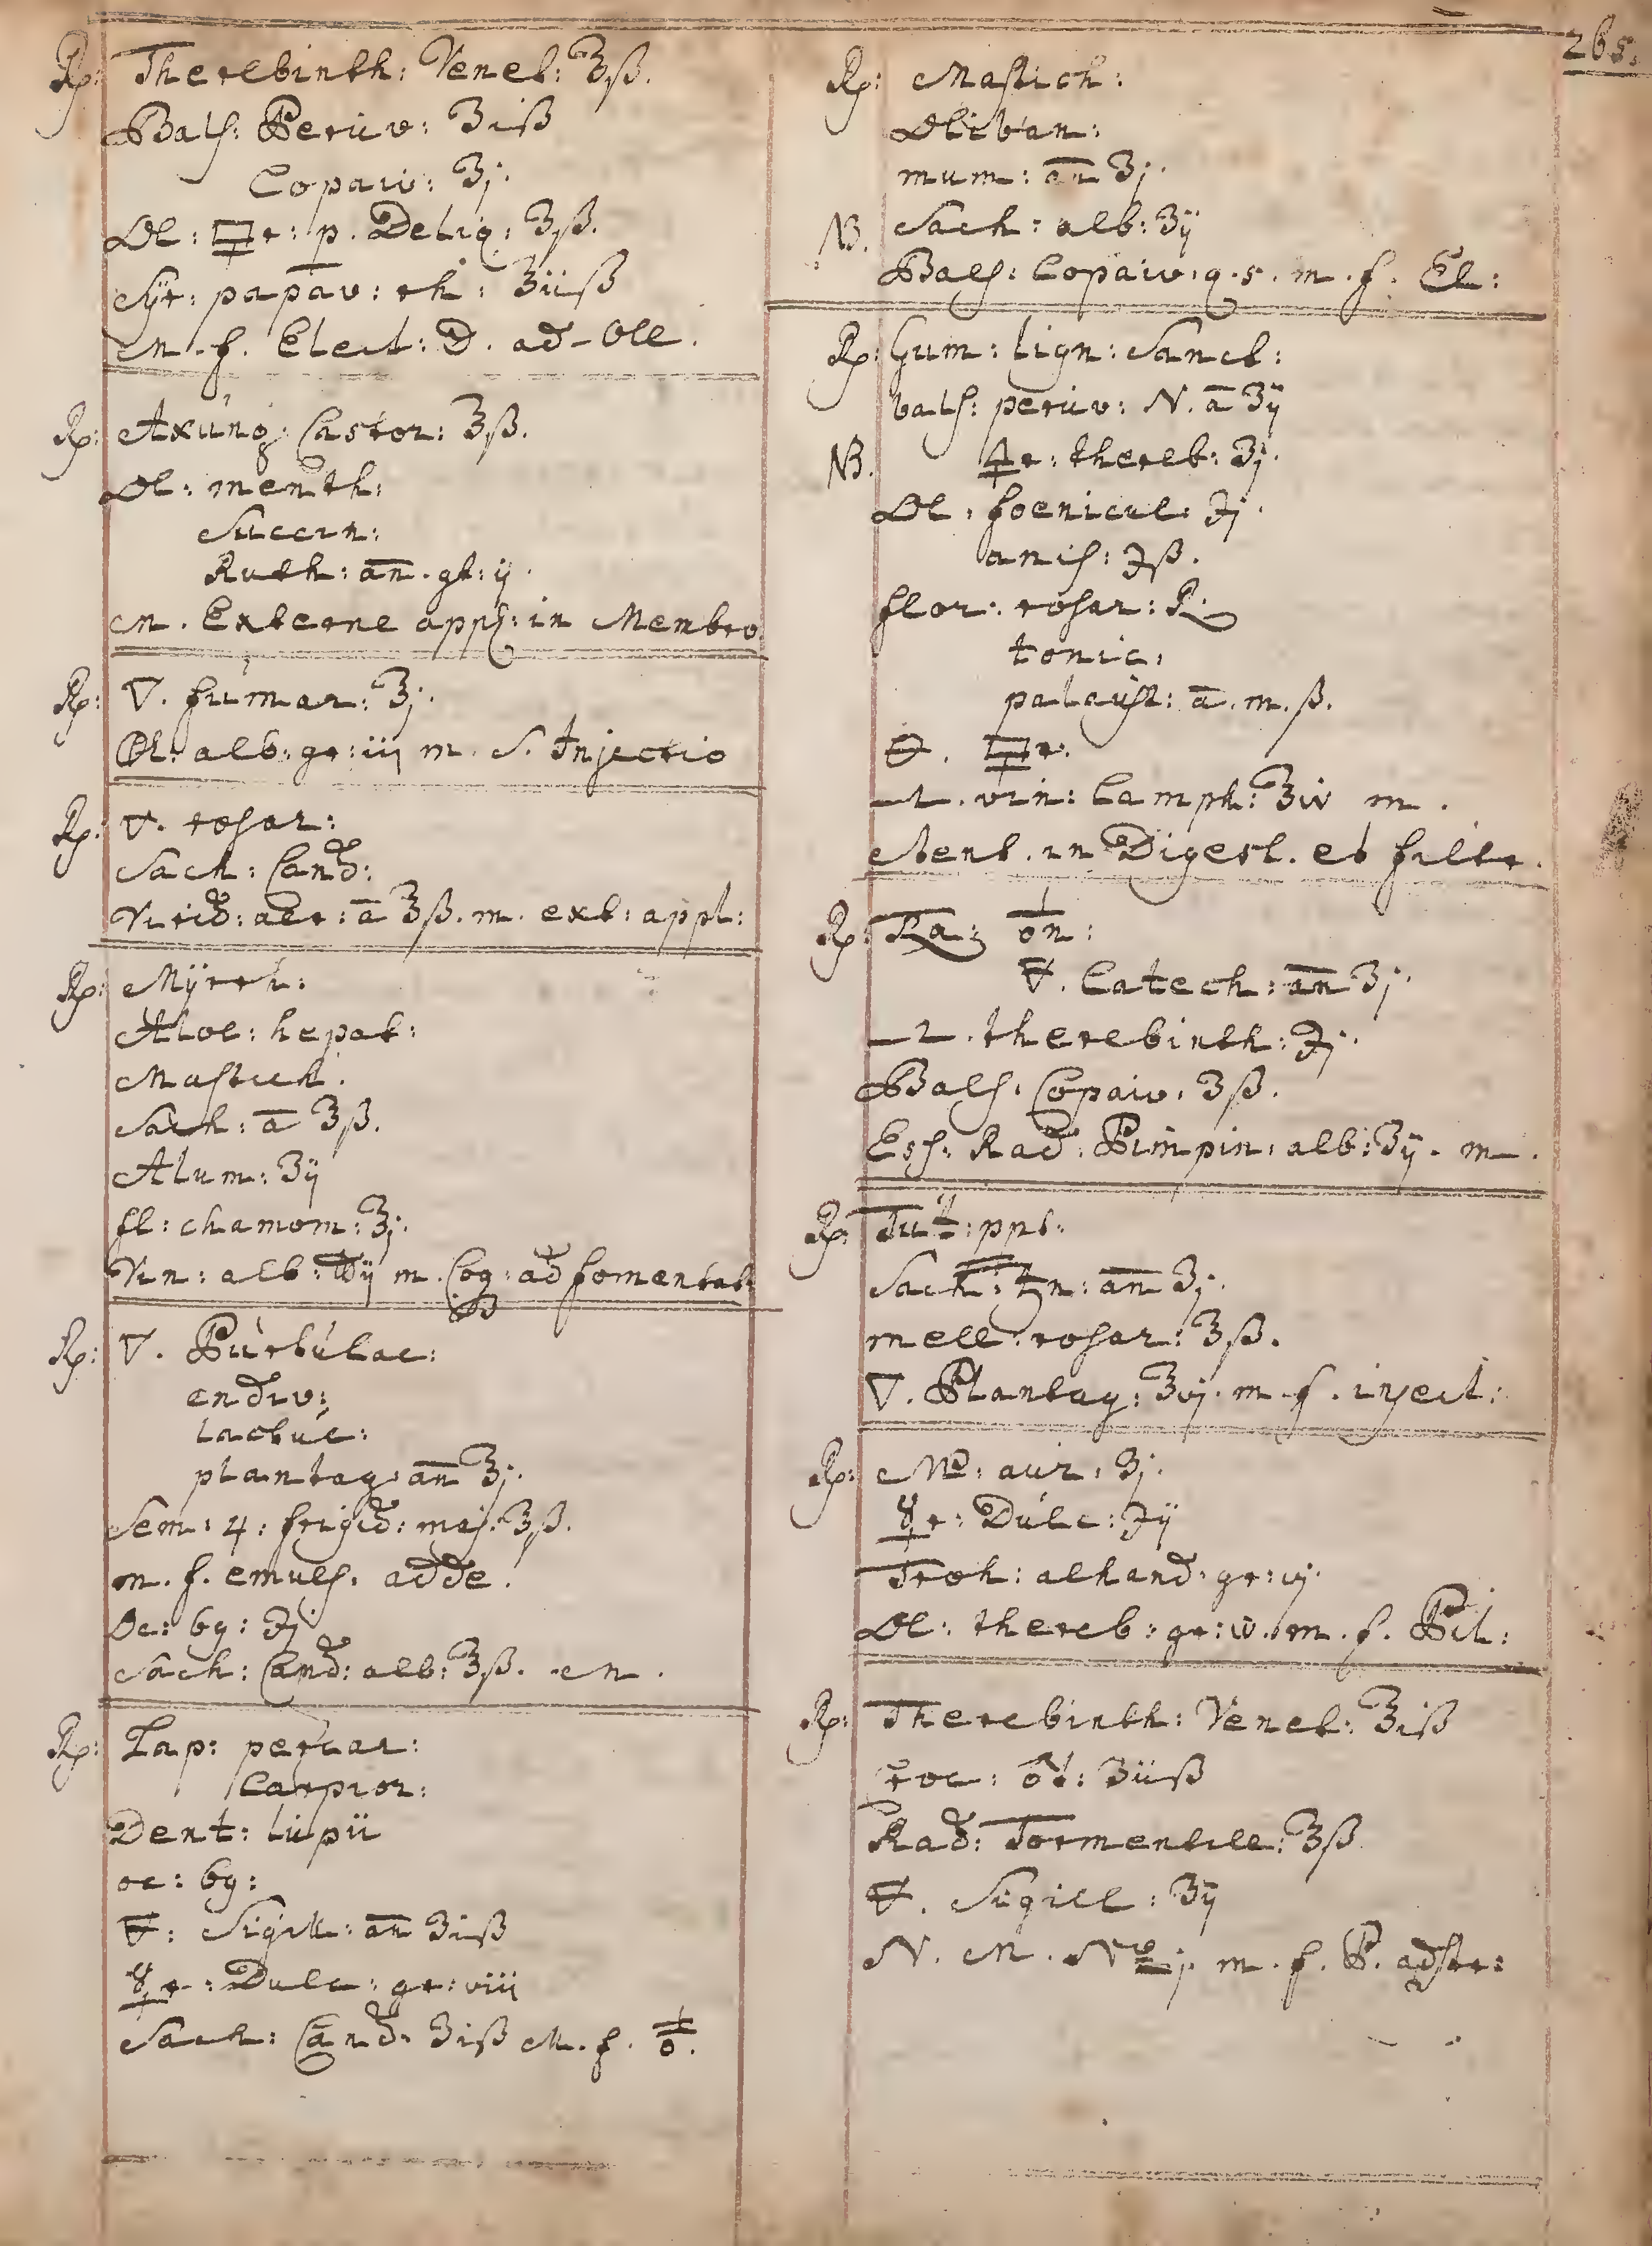 265.
Rp: Therebinth: Venet: ʒß.
Bals: Peruv: ʒiß
Copaiv: ʒj.
Ol: 🜍r: p. Deliq: ʒß.
Syr: papav: rh: ʒiiß
M. f. Elect: D. ad Oll.
Rp: Axung: Castor: ʒß.
Ol: menth:
Succin:
Ruth: an. gt: ij.
M. Externe appl: in Membro
Rp: ▽. fumar: ʒj.
alb: gr: iij m. S. Injectio
Rp: ▽. rosar:
Sach: Cand:
Virid: aer: a ʒß. m. ext: appl:
Rp: Myrrh:
Aloe: hepat:
Mastich.
Sach: a ʒß.
Alum: ʒij
fl: chamom: ʒj.
Vin: alb: ℔ij m. Coq: ad fomentat:
Rp: ▽. Purtulac:
endiv:
lactuc:
plantag: an ʒj.
Sem: 4: frigid: maj: ʒß.
m. f. emuls. adde.
Oc: 69: ℈j
Sach: Cand: alb: ʒß. m.
Rp: Lap: percar:
Carpior:
Dent: lupii
oc: 69:
Sigill: an ʒiß
☿r: Dulc: gr: viii
Sach: Cand: ʒiß M. f.
Rp: Mastich:
Oliban:
mum: an ʒj.
Sach: alb: ʒij
NB. Bals: Copaiv: q. s. m. f. El:
Rp: Gum: lign: Sanct:
bals: peruv: N. a ʒij
NB. 🜍r: thereb: ʒj.
Ol. foenicul: ℈j.
anis: ℈ß.
flor: rosar: R:
tonic:
palust: a. m. ß.
vin: Camph: ʒiv m.
Stent. in Digest. et filtr.
Rp:
Catech: an ʒj.
therebinth: ℈j.
Bals: Copaiv: ʒß.
Ess: Rad: Pimpin: alb: ʒij. m.
Rp: Tut: ppt:
Sach: ♄n: an ʒj.
mell: rosar: ʒß.
▽. Plantag: ʒvj. m. f. inject:
Rp: aur: ʒj.
☿r: Dulc: ℈ij
Troch: alhand: gr: vj.
Ol: thereb: gr: iv. m. f. Pil:
Rp: Therebinth: Venet: ʒiß
ʒiiß
Rad: Tormentill: ʒß
Sigill: ʒij
N. M. No j. m. f. P. adstr: